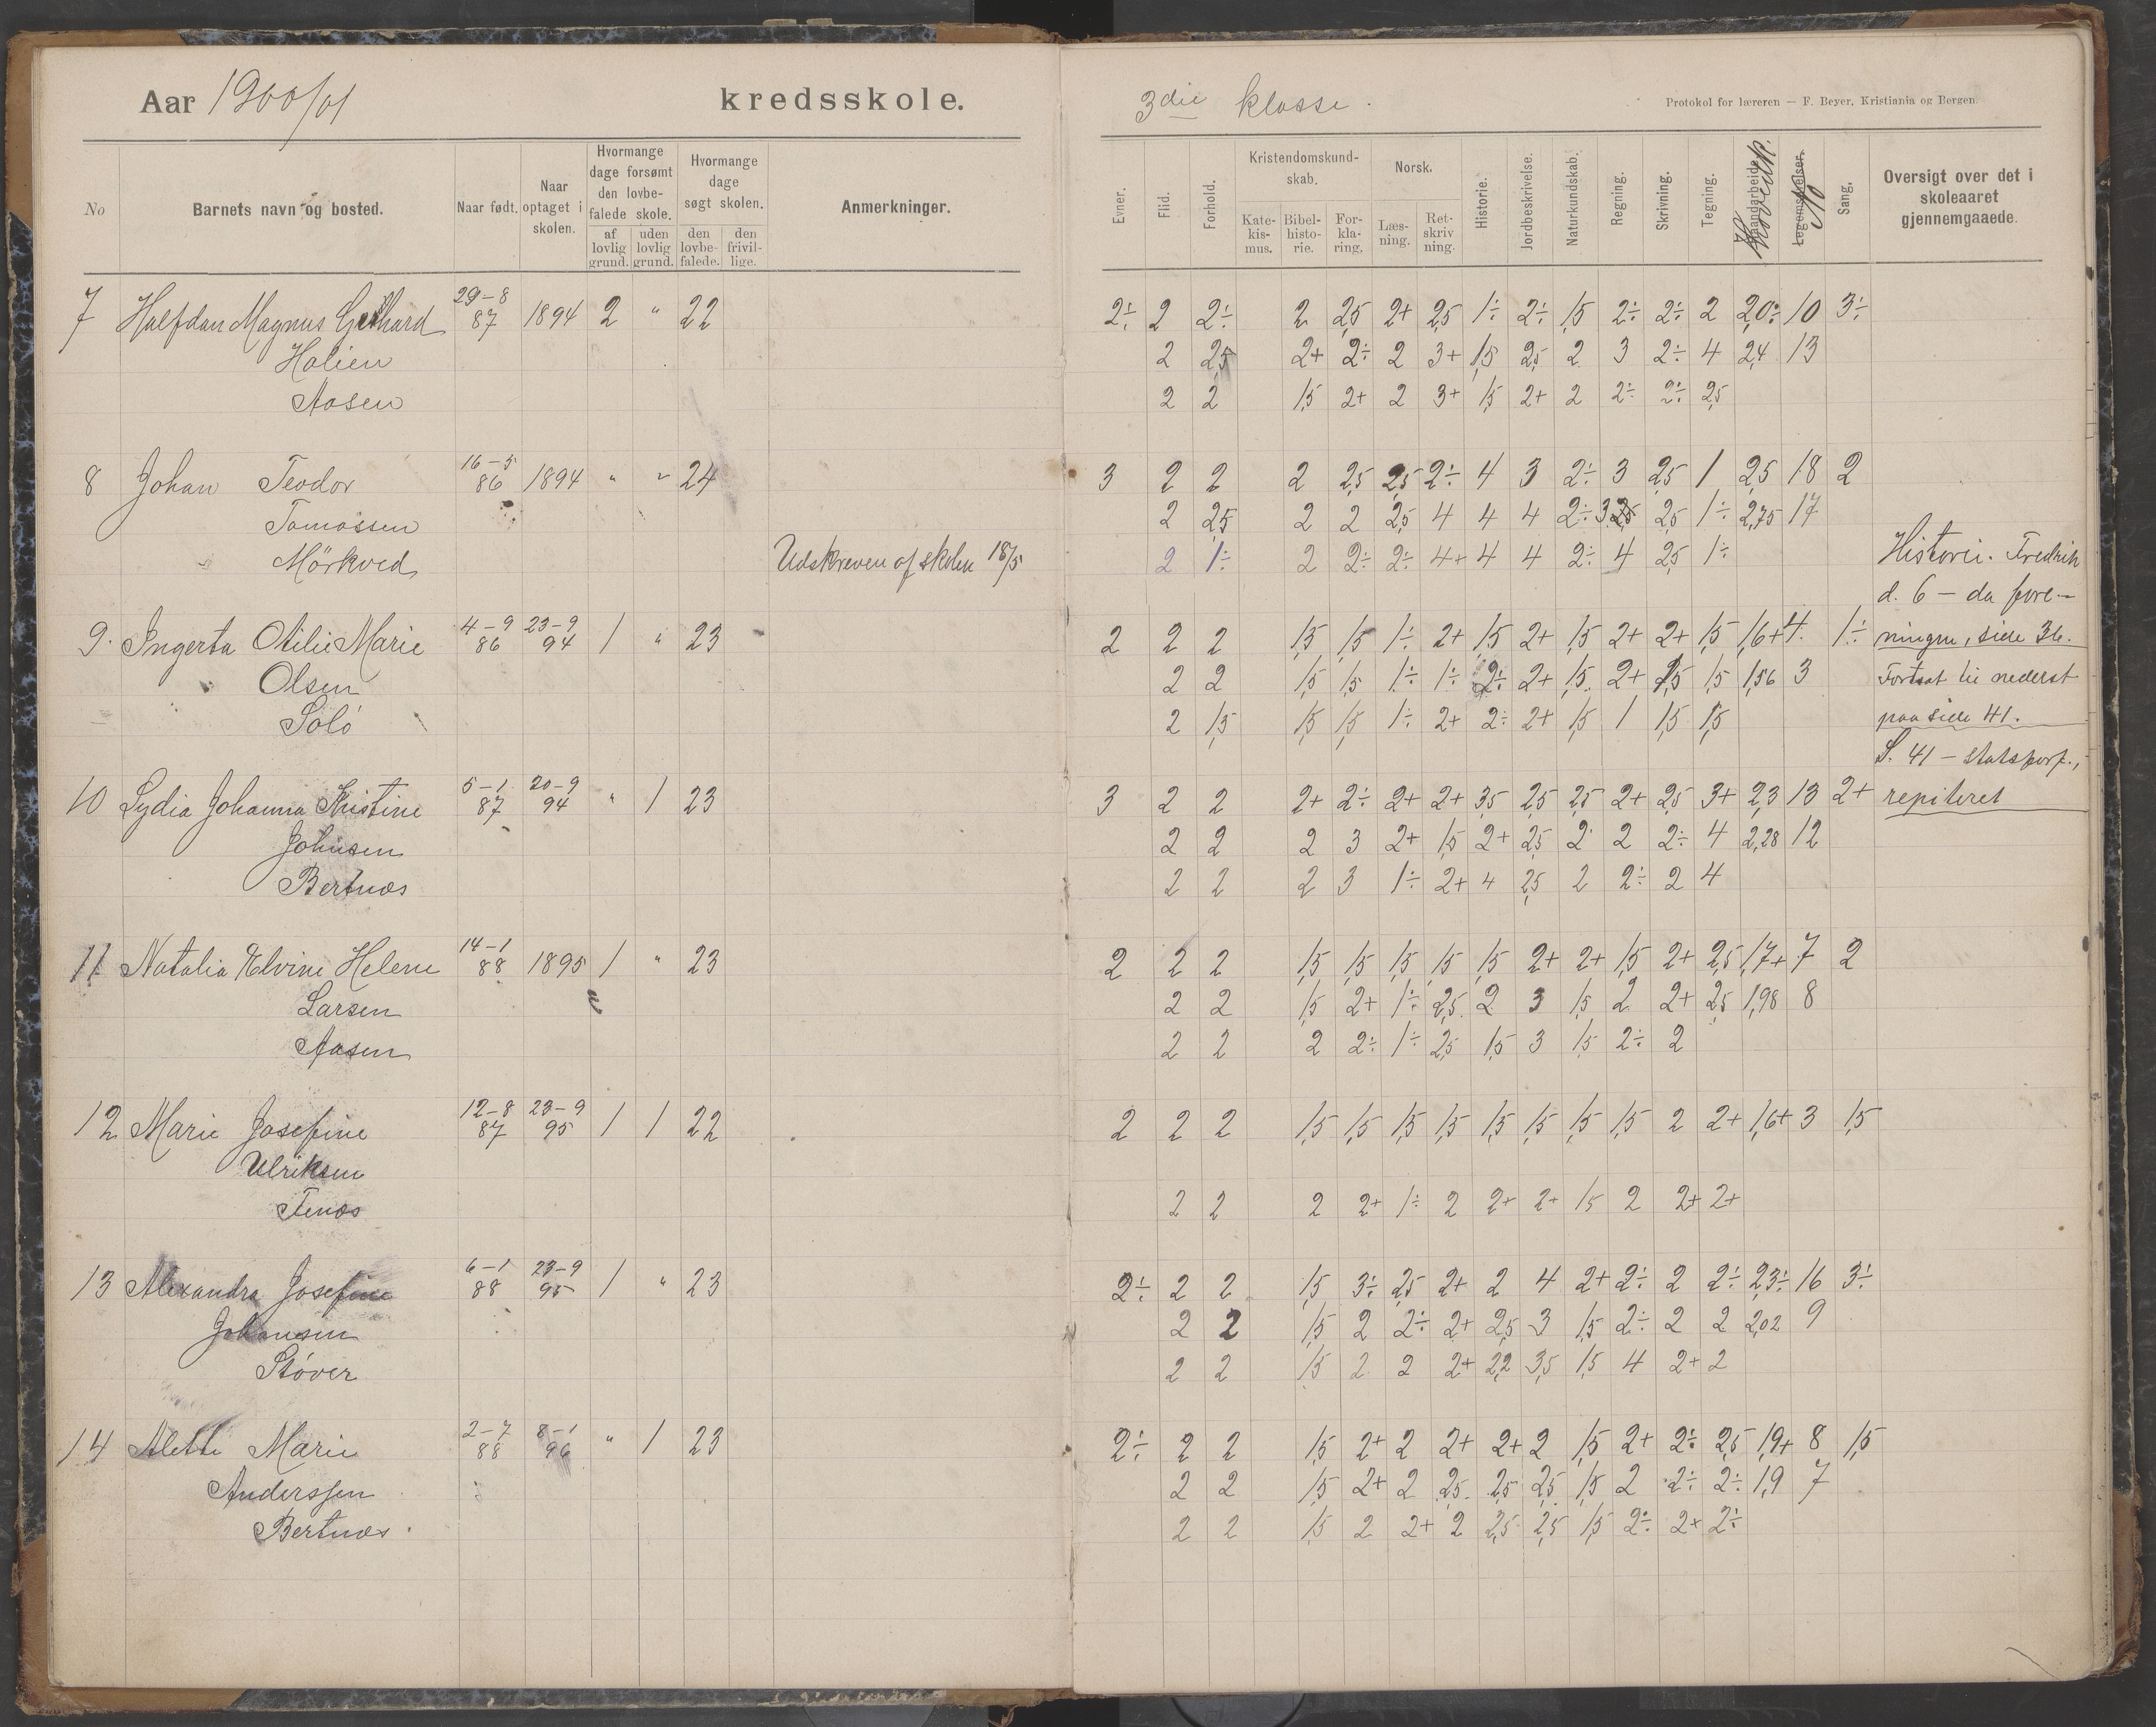 Aar 1900/01 kredsskole. 3die klasse. Protokol for læreren — F. Beyer, Kristiania og Bergen.
No Barnets navn og bosted. Naar født. Naar optaget i skolen. Hvormange dage forsømt den lovbefalede skole. af lovlig grund. uden lovlig grund. Hvormange dage søgt skolen. den lovbefalede. den frivillige. Anmerkninger.
Evner. Flid. Forhold. Kristendomskundskab. Katekismus. Bibelhistorie. Forklaring. Norsk. Læsning. Retskrivning. Historie. Jordbeskrivelse. Naturkundskab. Regning. Skrivning. Tegning. Haandarbeide. Hovedk. Legemsøvelser. No Sang. Oversigt over det i skoleaaret gjennemgaaede.
7 Halfdan Magnus Gethard 29-8 87 1894 2 " 22 2÷ 2 2÷ 2 2,5 2+ 2,5 1÷ 2÷ 1,5 2÷ 2÷ 2 2,0÷ 10 3÷
Holien 2 2,5 2+ 2÷ 2 3+ 1,5 2,5 2 3 2÷ 4 2,4 13
Aasen 2 2 1,5 2+ 2 3+ 1,5 2+ 2 2÷ 2÷ 2,5
8 Johan Teodor 16-5 86 1894 " " 24 3 2 2 2 2,5 2,5 2÷ 4 3 2÷ 3 2,5 1 2,5 18 2
Tomassen 2 2,5 2 2 2,5 4 4 4 2÷ 3 2,5 1÷ 2,75 17
Mörkved Udskreven af skolen 18/5 2 1÷ 2 2÷ 2÷ 4+ 4 4 2÷ 4 2,5 1÷ Historie. Fredrik
d. 6 — da fore-
9. Ingerta Otilie Marie 4-9 86 23-9 94 1 " 23 2 2 2 1,5 1,5 1÷ 2+ 1,5 2+ 1,5 2+ 2+ 1,5 1,6+ 4. 1÷ ningen, side 36.
Olsen 2 2 1,5 1,5 1÷ 1÷ 2÷ 2+ 1,5 2+ 1,5 1,5 1,56 3 Fortsat til nederst
Solö 2 1,5 1,5 1,5 1÷ 2+ 2÷ 2+ 1,5 1 1,5 1,5 paa side 41.
S. 41 — statsforf.,
10 Lydia Johanna Kristine 5-1 87 20-9 94 " 1 23 3 2 2 2+ 2÷ 2+ 2+ 3,5 2,5 2,5 2+ 2,5 3+ 2,3 13 2+ repiteret
Johnsen 2 2 2 3 2+ 1,5 2+ 2,5 2 2 2÷ 4 2,28 12
Bertnæs 2 2 2 3 1÷ 2+ 4 2,5 2 2÷ 2 4
11 Natalia Elvine Helene 14-1 88 1895 1 " 23 2 2 2 1,5 1,5 1,5 1,5 1,5 2+ 2+ 1,5 2+ 2,5 1,7+ 7 2
Larsen 2 2 1,5 2+ 1÷ 2,5 2 3 1,5 2 2+ 2,5 1,98 8
Aasen 2 2 2 2÷ 1÷ 2,5 1,5 3 1,5 2÷ 2
12 Marie Josefine 12-8 87 23-9 95 1 1 22 2 2 2 1,5 1,5 1,5 1,5 1,5 1,5 1,5 1,5 2 2+ 1,6+ 3 1,5
Ulriksen
Tenæs 2 2 2 2+ 1÷ 2 2+ 2+ 1,5 2 2+ 2+
13 Alexandra Josefine 6-1 88 23-9 95 1 " 23 2÷ 2 2 1,5 3÷ 2,5 2+ 2 4 2+ 2÷ 2 2÷ 2,3÷ 16 3÷
Johansen 2 2 1,5 2 2÷ 2+ 2,5 3 1,5 2÷ 2 2 2,02 9
Støver 2 2 1,5 2 2 2+ 2,2 3,5 1,5 4 2+ 2
14 Alette Marie 2-7 88 8-1 96 " 1 23 2÷ 2 2 1,5 2+ 2 2+ 2+ 2 1,5 2+ 2÷ 2,5 1,9+ 8 1,5
Anderssen 2 2 1,5 2+ 2 2,5 2,5 2,5 1,5 2 2÷ 2÷ 1,9 7
Bertnæs. 2 2 1,5 2 2+ 2 2,5 2,5 1,5 2÷ 2+ 2÷